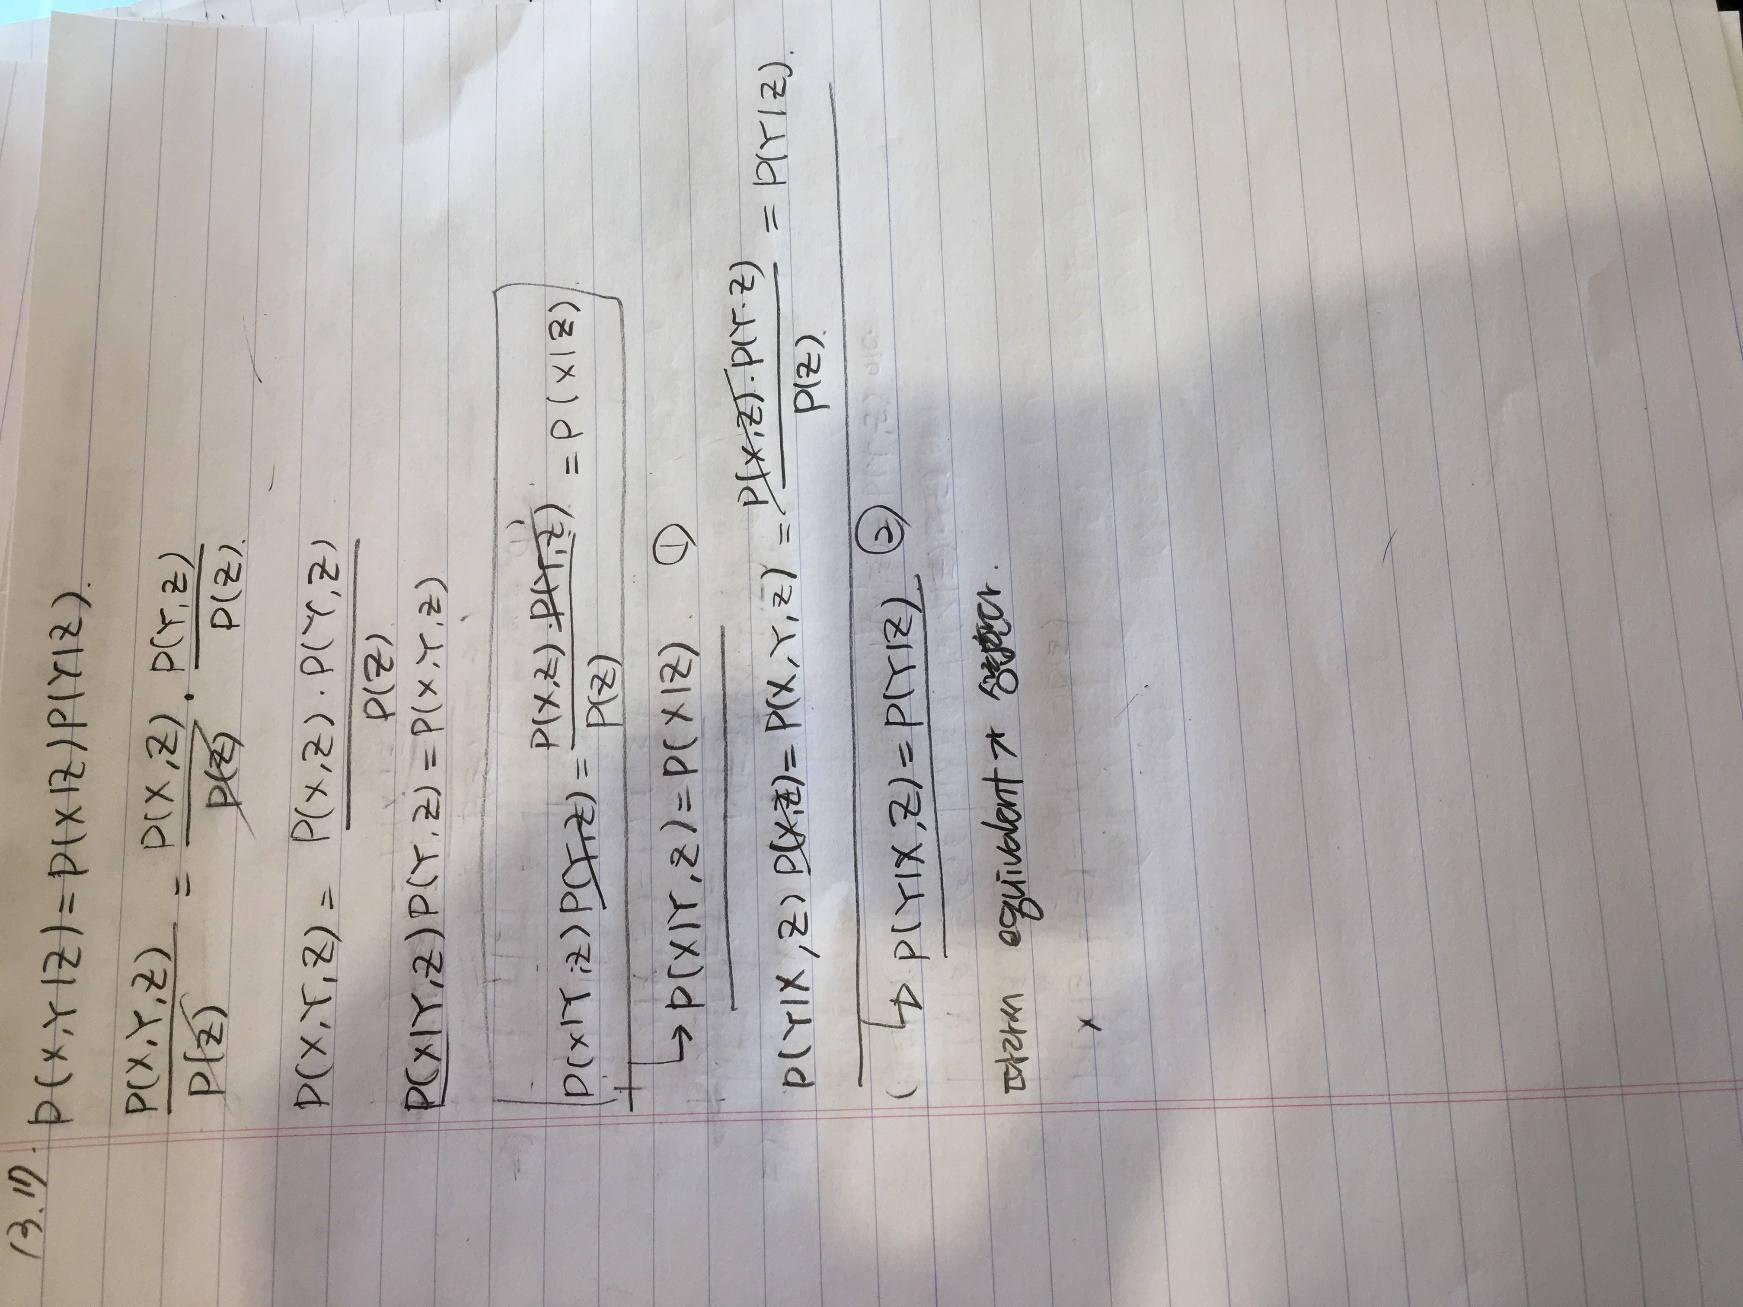 13.17. P(X,Y|Z)=P(X|Z)P(Y|Z).
P(X,Y,Z)/P(Z) = P(X,Z)/P(Z) · P(Y,Z)/P(Z).
P(X,Y,Z) = P(X,Z)·P(Y,Z)/P(Z)
P(X|Y,Z)P(Y,Z)=P(X,Y,Z)
P(X|Y,Z)P(Y,Z) = P(X,Z)·P(Y,Z)/P(Z) = P(X|Z)
↳ P(X|Y,Z)=P(X|Z). ①
P(Y|X,Z)P(X,Z)=P(X,Y,Z) = P(X,Z)·P(Y·Z)/P(Z). = P(Y|Z).
( ↳ P(Y|X,Z)=P(Y|Z) ②
따라서 equivalent가
x